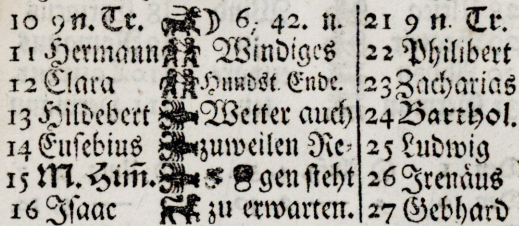 10 9 n. Tr. ☽ 6, 42. n. 21 9 n. Tr.
11 Hermann Windiges 22 Philibert
12 Clara Hundst. Ende. 23 Zacharias
13 Hildebert Wetter auch 24 Barthol.
14 Eusebius zuweilen Re- 25 Ludwig
15 M. Him̃. gen steht 26 Irenäus
16 Isaac zu erwarten. 27 Gebhard